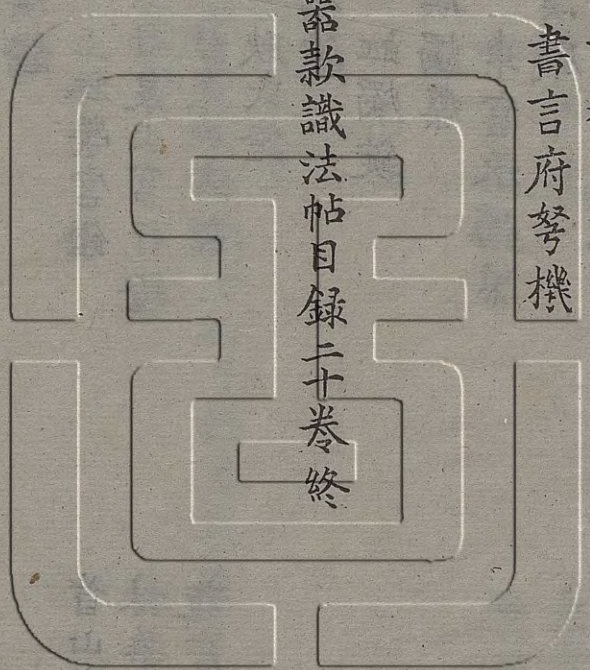 書言府弩機
器款識法帖目録二十卷終